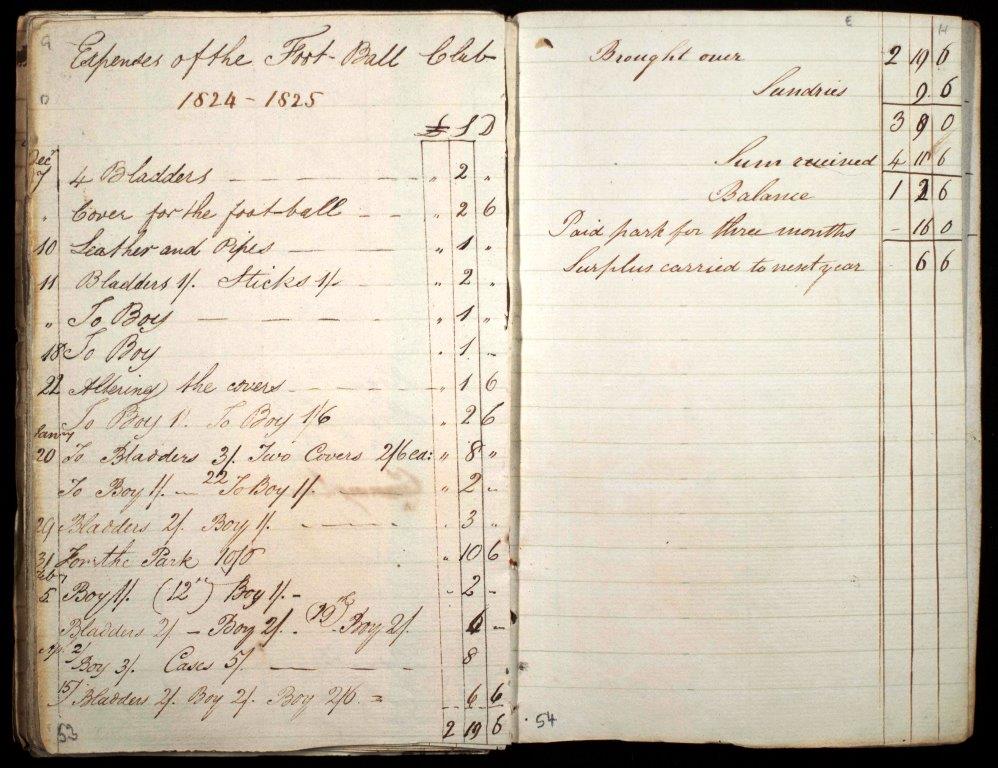 Expenses of the Foot-Ball Club
1824 - 1825
£ S D
Dec
7 4 Bladders — — — — „ 2 „
„ Cover for the foot-ball — — „ 2 6
10 Leather and Pipes — — — „ 1 „
11 Bladders 1/. Sticks 1/- „ 2 „
„ To Boy — — — — „ 1 „
18 To Boy „ 1 -
22 Altering the covers — — — „ 1 6
To Boy 1/. To Boy 1/6 „ 2 6
Jany
20 To Bladders 3/. Two Covers 2/6 ea: „ 8 „
To Boy 1/. — 22 To Boy 1/. — „ 2 -
29 Bladders 2/. Boy 1/. — — — 3 „
31 For the Park 10/6 „ 10 6
Feb
5 Boy 1/. (12") Boy 1/. - - 2 -
Bladders 2/. - Boy 2/. - (19th) Boy 2/. 6 -
2/ Boy 3/. Cases 5/. — — — 8
15/ Bladders 2/. Boy 2/. Boy 2/6 = 6 6
2 19 6
53
E
H
Brought over 2 19 6
Sundries 9 6
3 9 0
Sum received 4 11 6
Balance 1 2 6
Paid park for three months - 16 0
Surplus carried to next year 6 6
54